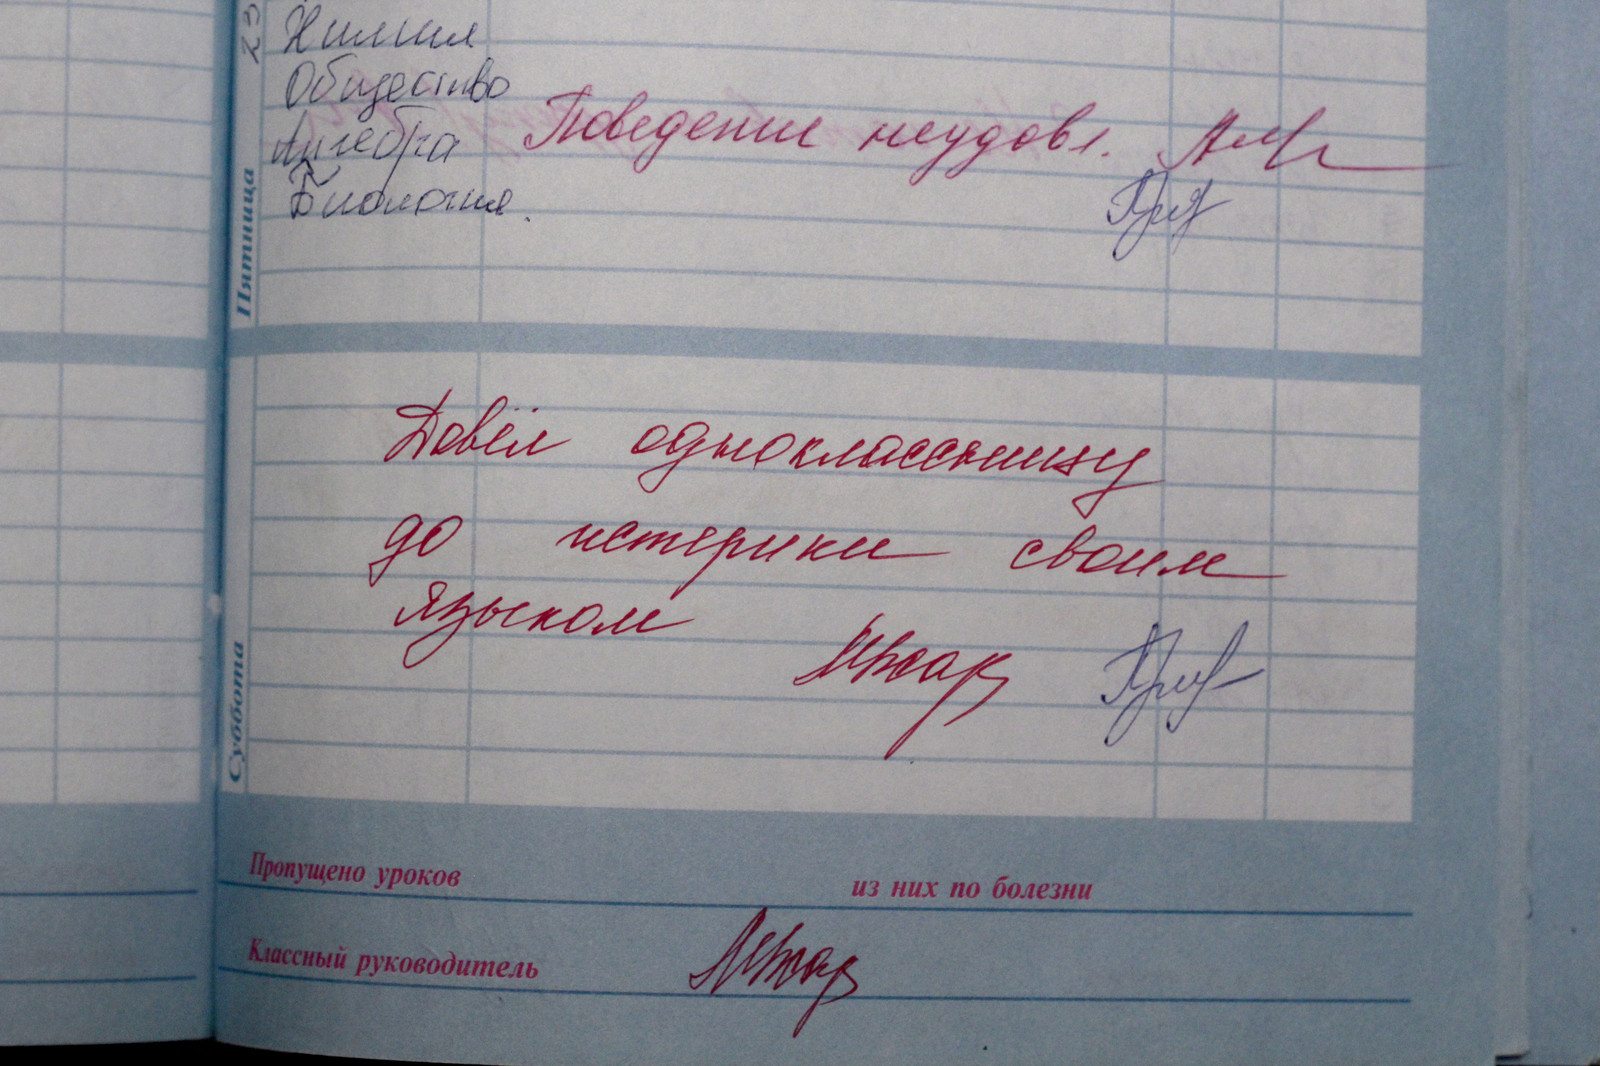 23
Пятница
Химия
Общество
Алгебра Поведение неудовл.
Биология.
Суббота
Довёл одноклассницу
до истерики своим
языком
Пропущено уроков из них по болезни
Классный руководитель